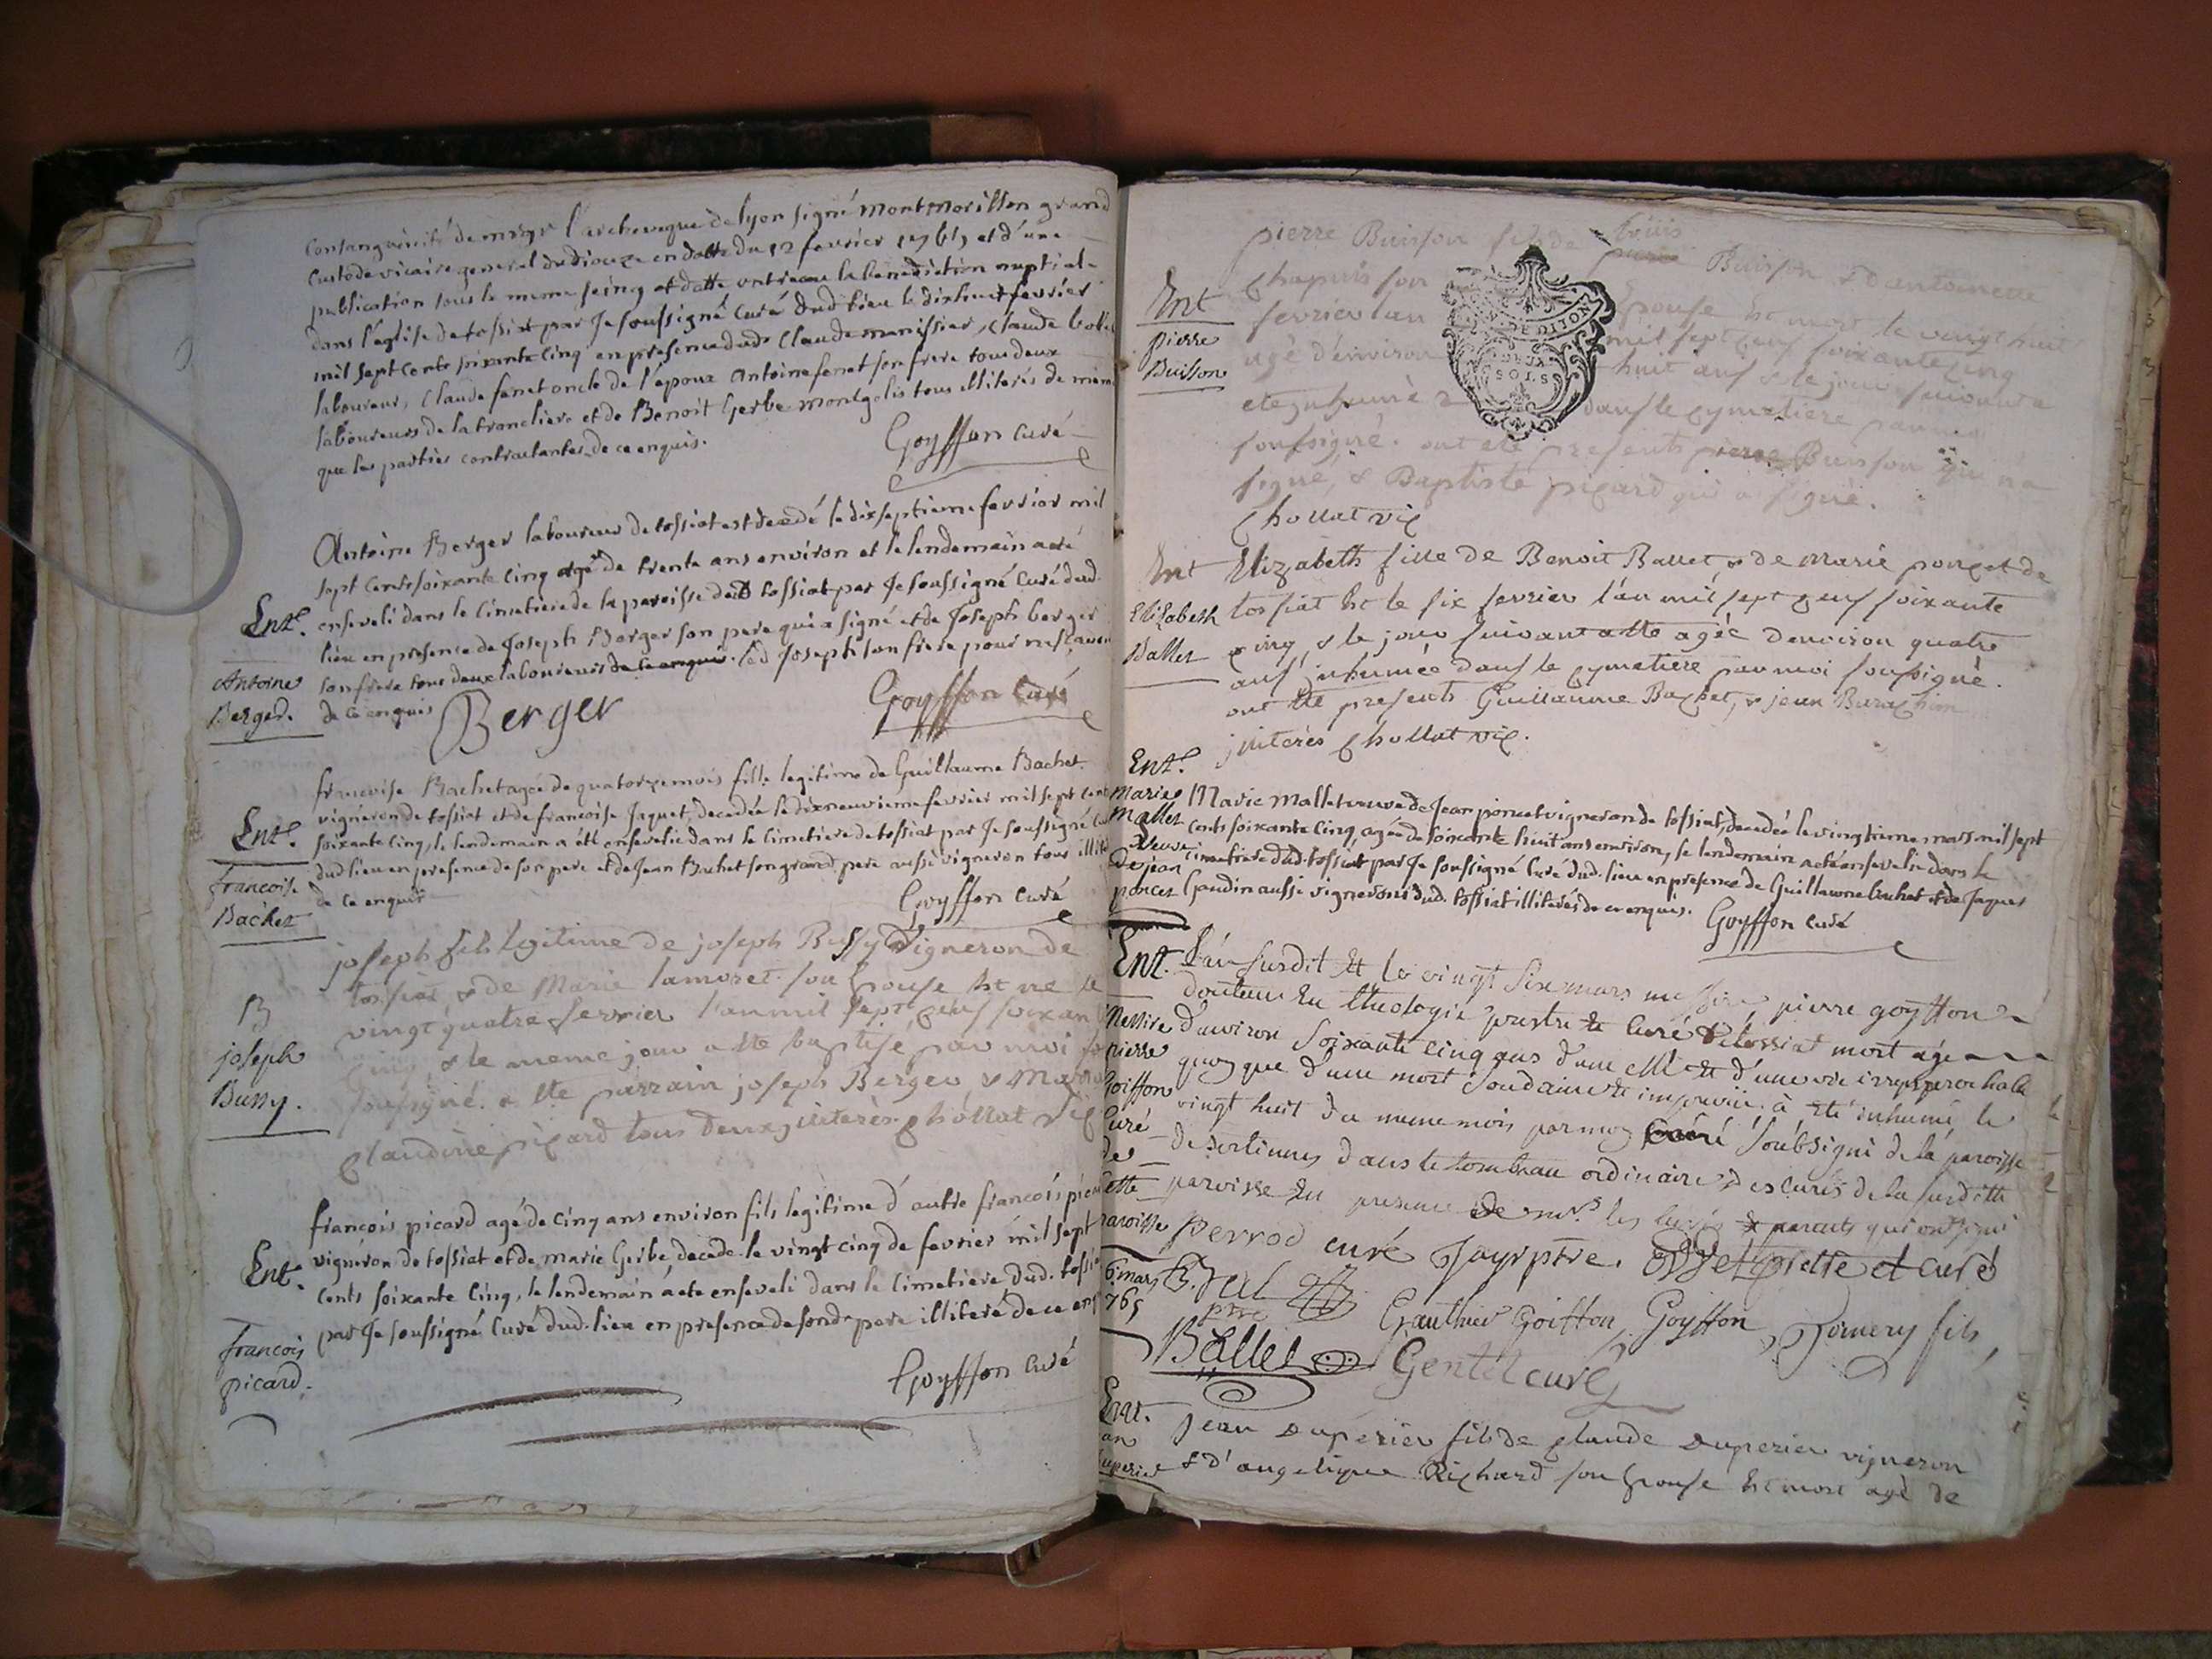 consanguinité de msgr l'archeveque de lyon signé Montmorillon grand
custode vicaire general du dioceze en datte du 12 fevrier 1765 et d'une
publication sous le meme seing et datte ont receu la benediction nuptiale
dans l'eglise de tossiat par Je soussigné Curé dud lieu le dixhuit fevrier
mil sept cents soixante cinq en presence dud Claude manissier, Claude
laboureur, Claude fenet oncle de l'epoux Antoine fenet son frere tous deux
laboureurs de la trancliere et de Benoit Gerbe montgolis tous illiterés de meme
que les parties contractantes de ce enquis.
Goyffon curé
Antoine Berger laboureur de tossiat est decedé le dixseptieme fevrier mil
sept cents soixante cinq agé de trente ans environ et le lendemain a eté
Ent. enseveli dans le cimetiere de la paroisse dud tossiat par Je soussigné Curé dud.
lieu en presence de Joseph Berger son pere qui a signé et de Joseph berger
Antoine son frere tous deux laboureurs de ce enquis. led Joseph son frere pour ne scavoir
Berger. de ce enquis Berger Goyffon Curé
francoise Bachet agée de quatorze mois fille legitime de Guillaume Bachet
vigneron de tossiat et de francoise Jaquet, decedée le dixneuvieme fevrier mil sept cent
Ent. soixante cinq, le lendemain a été ensevelie dans le cimetiere de tossiat par Je soussigné
dud lieu en presence de son pere et de Jean Bachet son grand pere aussi vigneron tous
francoise de ce enquis
Bachet Goyffon curé
joseph fils legitime de joseph Bussy Vigneron de
tossiat & de Marie lamoret son Epouse Est né le
B vingt quatre fevrier l'an mil sept cens soixante
joseph cinq, & le meme jour a ete baptisé par moi
Bussy. soussigné. a ete parrain joseph Berger &
claudine picard tous deux jniterés. chollat vic
françois picard agé de cinq ans environ fils legitime d'autre francois
vigneron de tossiat et de marie Gerbe, decedé le vingt cinq de fevrier mil sept
Ent. cents soixante cinq, le lendemain a ete enseveli dans le cimetiere dud. tossiat
par Je soussigné Curé dud. lieu en presence de sond. pere illiteré de ce
francois
picard. Goyffon curé
pierre Buisson fils de Buisson & d'antoinette
Ent chapuis son Epouse Est mort le vingt huit
pierre fevrier l'an mil sept cens soixante cinq
Buisson agé d'environ huit ans & le jour suivant a
eté jnhumé dans le cymetiere par moi
soussigné. ont eté presents pierre Buisson qui n'a
signé, & Baptiste picard qui a signé.
chollat vic
Ent Elizabeth fille de Benoit Ballet & de Marie ponçet de
Elizabeth tossiat Est le six fevrier l'an mil sept cens soixante
Ballet cinq, & le jour suivant a eté agée d'environ quatre
ans jnhumée dans le cymetiere par moi soussigné.
ont eté presents Guillaume Bachet, & jean
jniterés chollat vic.
Ent.
Marie Mallet veuve de Jean poncet Marie Mallet veuve de Jean poncet vigneron de tossiat, decedée le vingtieme mars mil sept
cents soixante cinq, agée de soixante huit ans environ, le lendemain a eté ensevelie dans le
cimetiere dud. tossiat par Je soussigné Curé dud. lieu en presence de Guillaume bachet et de Jaques
Gaudin aussi vignerons dud. tossiat illiterés de ce enquis. Goyffon curé
Ent. L'an susdit et le vingt six mars messire pierre goyffon
docteur En theologie prestre et curé de tossiat mort agé
Messire d'environ soixante cinq ans d'une et d'une vie irreprochable
pierre quoyque d'une mort soudaine et imprevue à eté inhumé le
Goiffon vingt huit du meme mois par moy curé soubsigné de la paroisse
Curé de dans le tombeau ordinaire des curés de la susditte
de cette paroisse En presence de mrs. les curés & parents qui ont signé
paroisse Perrod curé prestre et curé
mars 765 Gauthier Goiffon, Goyffon, fils
Ballet Gentil curé
Ent. Jean Duperier fils de claude Duperier vigneron
& d'angelique Richard son Epouse Est mort agé de